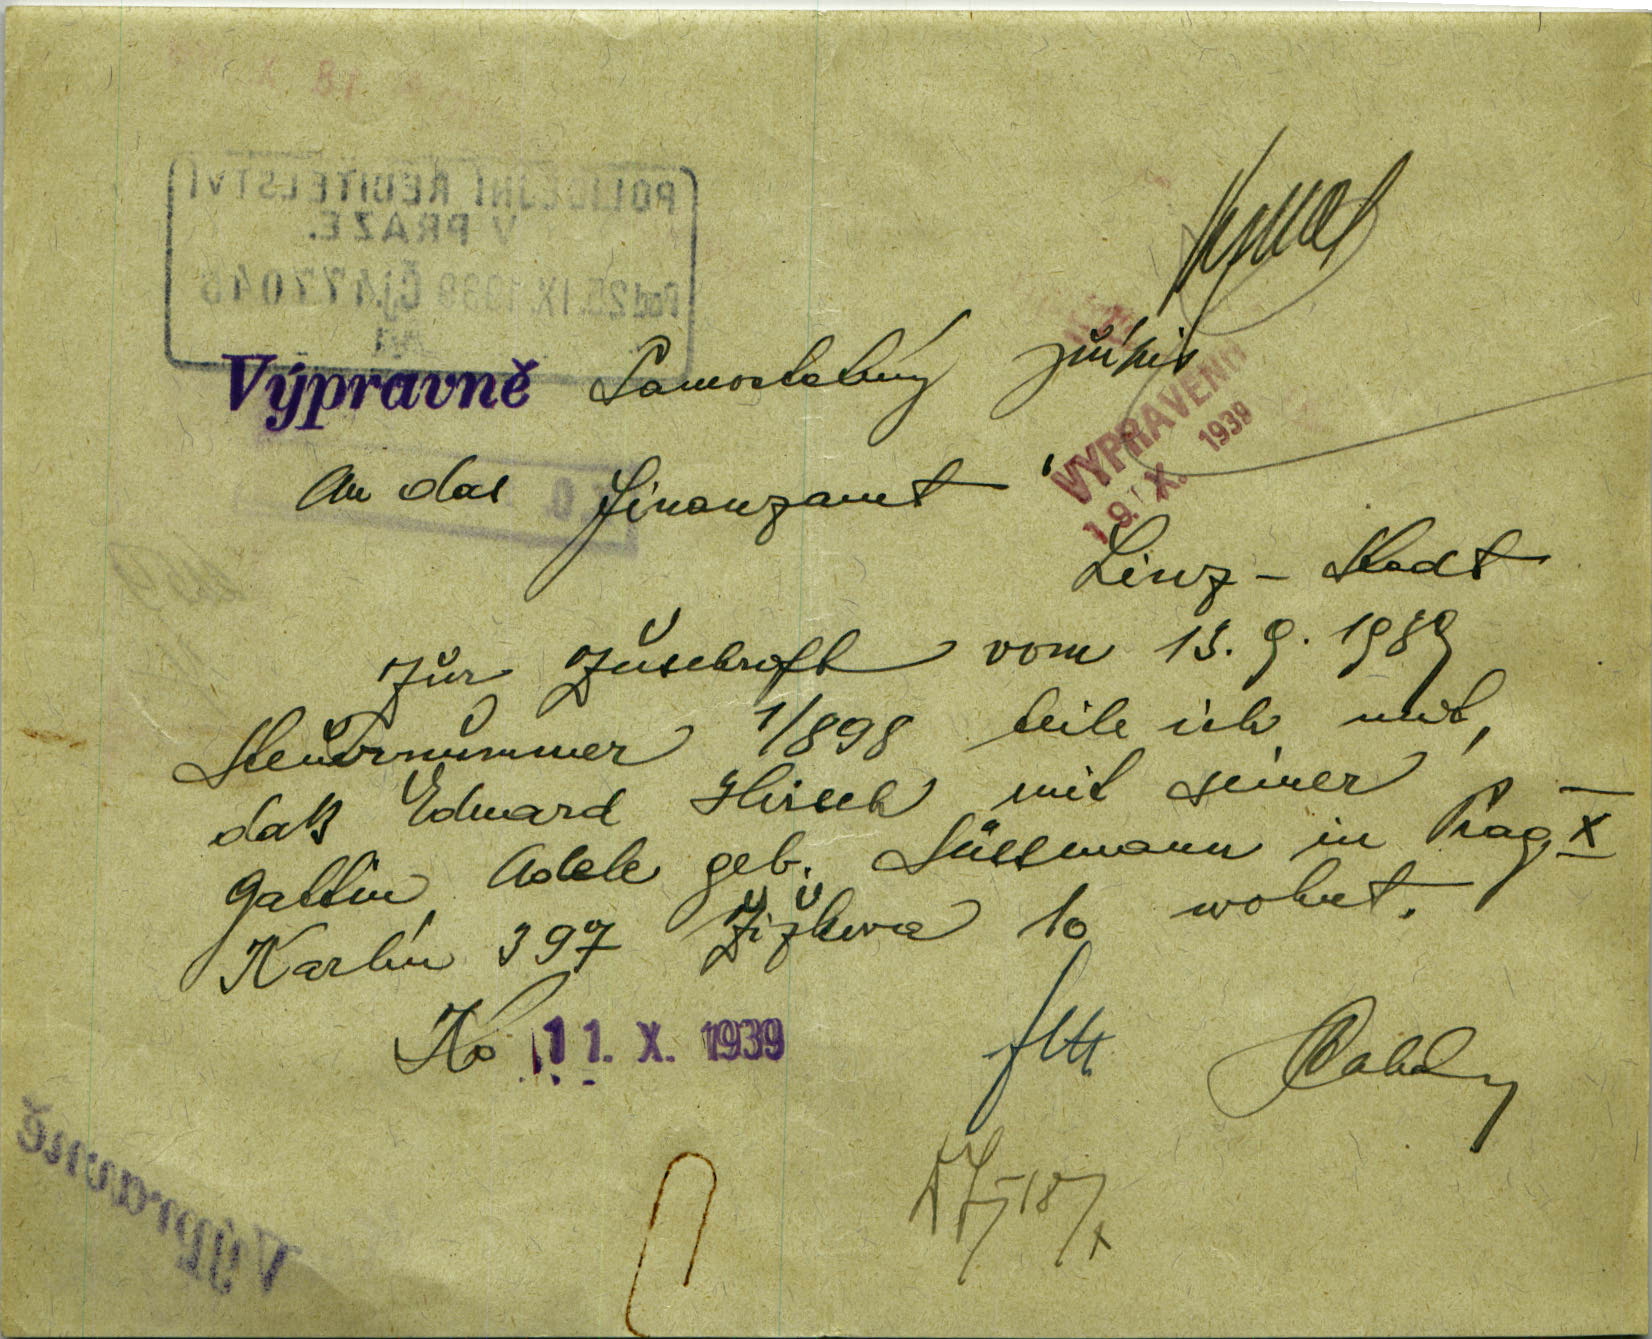 Výpravně Samostatný přípis
VYPRAVENO
19. X. 1939
An das Finanzamt
Linz - Stadt
Zur Zuschrift vom 13. 9. 1939
Steuernummer 1/898 teile ich mit,
daß Eduard Hirsch mit seiner
Gattin Adele geb. Süssmann in Prag X
Karlín 397 Žižkova 10 wohnt.
11. X. 1939
POLICEJNÍ ŘEDITELSTVÍ
V PRAZE.
Pod 25. IX. 1939 Čj. 477046
Výpravně